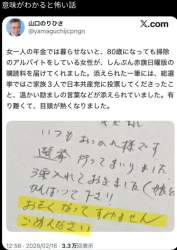 意味がわかると怖い話
山口のりひさ
@yamaguchijcpngn
女一人の年金では暮らせないと、80歳になっても掃除
のアルバイトをしている女性が、しんぶん赤旗日曜版の
購読料を届けてくれました。添えられた一筆には、総選
挙ではご家族3人で日本共産党に投票してくださったこ
と、温かい励ましの言葉などが添えられていました。有
り難くて、目頭が熱くなりました。
いつもお
様です
選挙 行ってまいりました
3票入れておきました(娘も
がんばって下さい
おそくなってすみません
ごめんなさい
12:58・2026/02/16・3.3万回表示